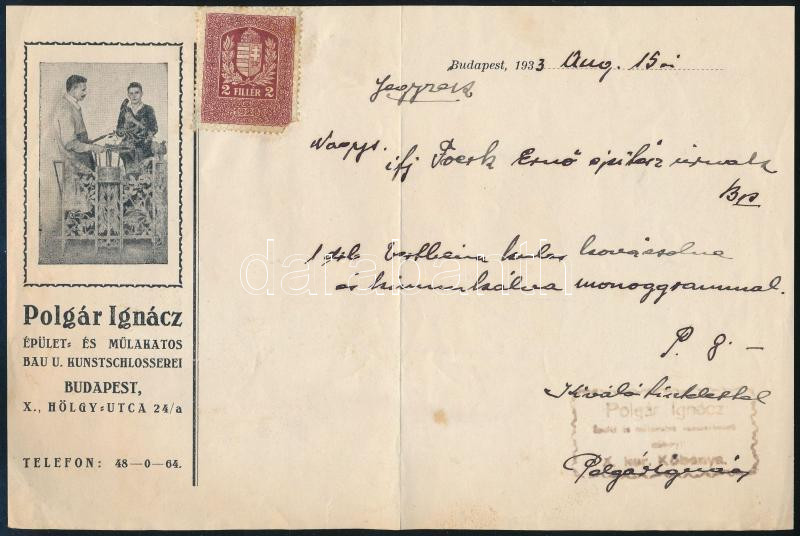 2 FILLÉR 2
Budapest, 1933 Aug. 15én
Jegyzék
Nagys. ifj Foerk Ernő építész úrnak
Bp
1 drb. Vertheim kulcs kovácsolva
és kimunkálva monoggrammal.
P. 8.—
Kiváló tisztelettel
Polgár Ignácz
X. ker. Kőbánya.
Polgár Ignácz
Polgár Ignácz
ÉPÜLET= ÉS MŰLAKATOS
BAU U. KUNSTSCHLOSSEREI
BUDAPEST,
X., HÖLGY=UTCA 24/a
TELEFON: 48—0—64.
darabanth